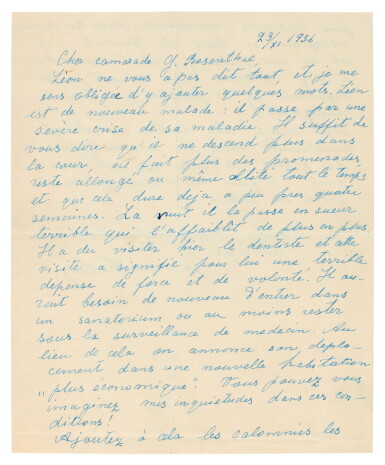 23/XI 1936
Cher camarade G. Rosenthal,
Léon ne vous a pas dit tout, et je me
sens obligée d'y ajouter quelques mots. Léon
est de nouveau malade: il passe par une
sevère crise de sa maladie. Il suffit de
vous dire qu'il ne descend plus dans
la cour, ne fait plus des promenades,
reste allongé ou même alité tout le temps
et que cela dure deja a peu pres quatre
semaines. La nuit il la passe en sueur
terrible qui l'affaiblit de plus en plus.
Il a du visiter hier le dentiste et cette
visite a signifie pour lui une terrible
depense de force et de volonté. Il au-
rait besoin de nouveau d'entrer dans
un sanatorium ou au moins rester
sous la surveillance de medecin. Au
lieu de cela on annonce son depla-
cement dans une nouvelle habitation
"plus économique". Vous pouvez vous
imaginez mes inquietudes dans ces con-
ditions!
Ajoutez à cela les calomnies les